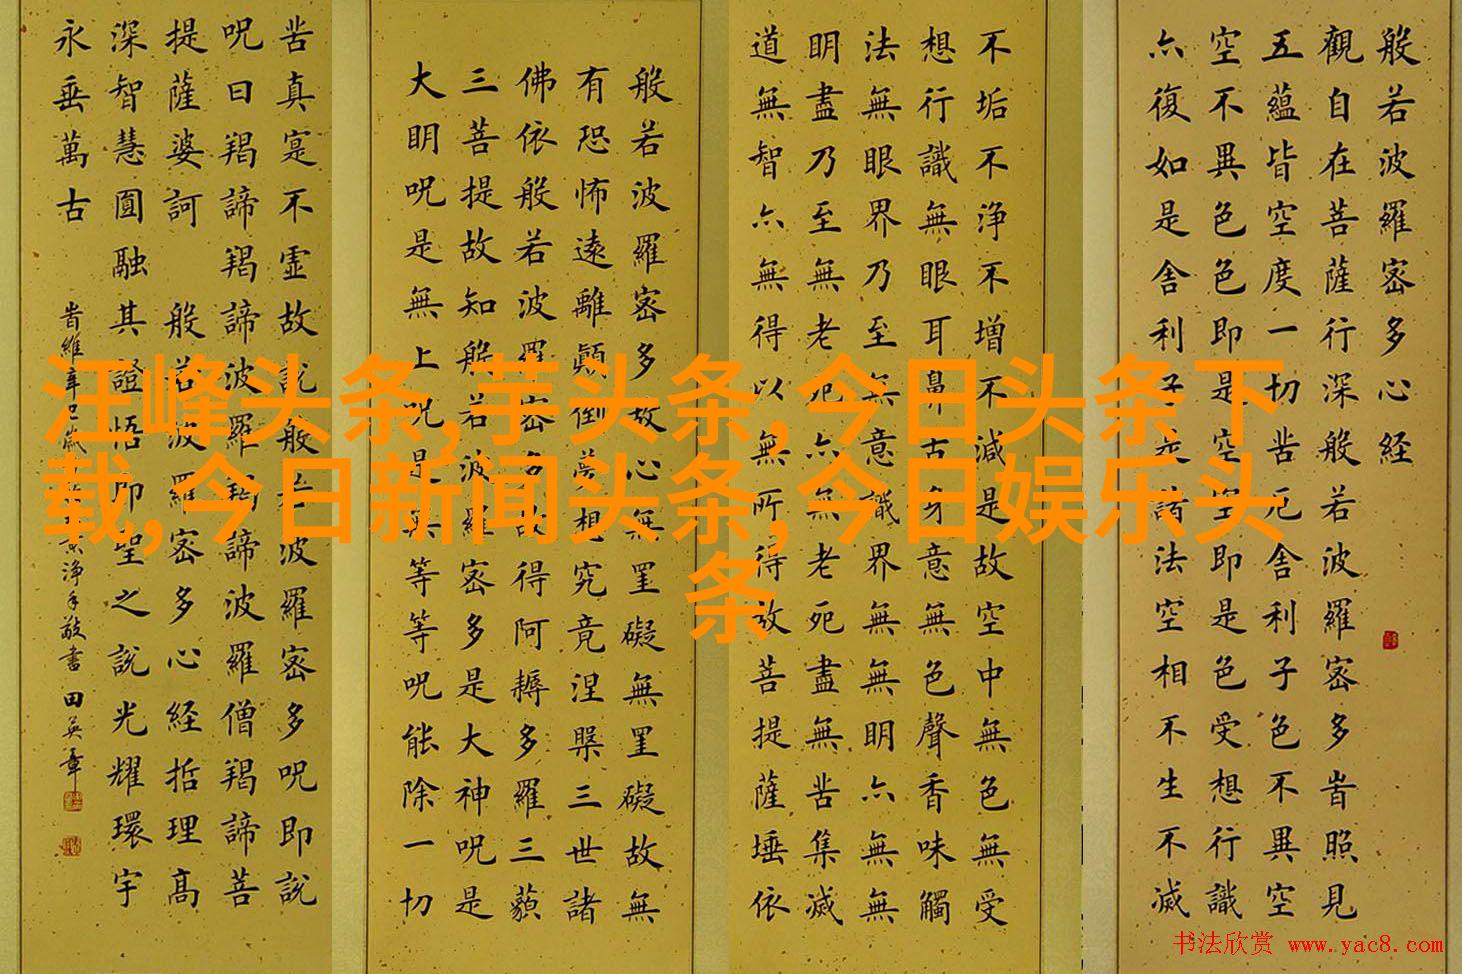 般若波羅密多心经
觀自在菩薩行深般若波羅密多旹照見
五蘊皆空度一切苦厄舍利子色不異空
空不異色色即是空空即是色受想行識
亦復如是舍利子是諸法空相不生不滅
不垢不淨不增不減是故空中無色無受
想行識無眼耳鼻舌身意無色聲香味觸
法無眼界乃至無意識界無無明亦無無
明盡乃至無老死亦無老死盡無苦集滅
道無智亦無得以無所得故菩提薩埵依
般若波羅密多故心無罣礙無罣礙故無
有恐怖遠離顛倒夢想究竟涅槃三世諸
佛依般若波羅密多故得阿耨多羅三藐
三菩提故知般若波羅密多是大神呪是
大明呪是無上呪是無等等呪能除一切
苦真寔不虛故說般若波羅密多呪即說
呪曰羯諦羯諦波羅羯諦波羅僧羯諦菩
提薩婆訶 般若波羅密多心经括理高
深智慧圓融其證悟即聖之說光耀環宇
永垂萬古
旹維辛巳歲 淨手敬書 田英章
汪峰头条,芋头条,今日头条下
载,今日新闻头条,今日娱乐头
条
书法欣赏 www.yac8.com